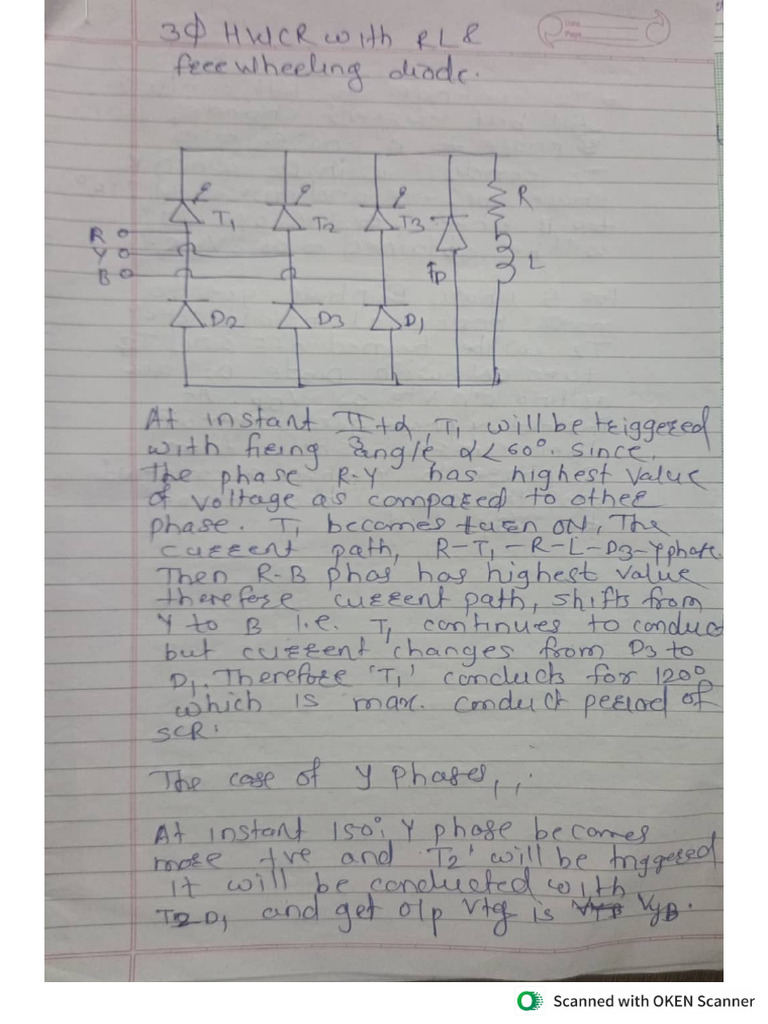 3Φ HWCR with RL &
freewheeling diode.
T1
T2
T3
R
R
Y
B
L
fD
D2
D3
D1
At instant π/3+α, T1 will be triggered
with firing angle α<60°. Since
the phase R-Y has highest value
of voltage as compared to other
phase. T1 becomes turn ON, The
current path, R-T1-R-L-D3-Yphase.
Then R-B phas has highest value
therefore current path, shifts from
Y to B i.e. T1 continues to conduct
but current changes from D3 to
D1. Therefore 'T1' conducts for 120°
which is max. conduct period of
SCR.
The case of Y phases,,.
At instant 150°, Y phase becomes
more +ve and 'T2' will be triggered
it will be conducted with
T2 D1 and get o/p Vtg is VYB VyB.
Scanned with OKEN Scanner